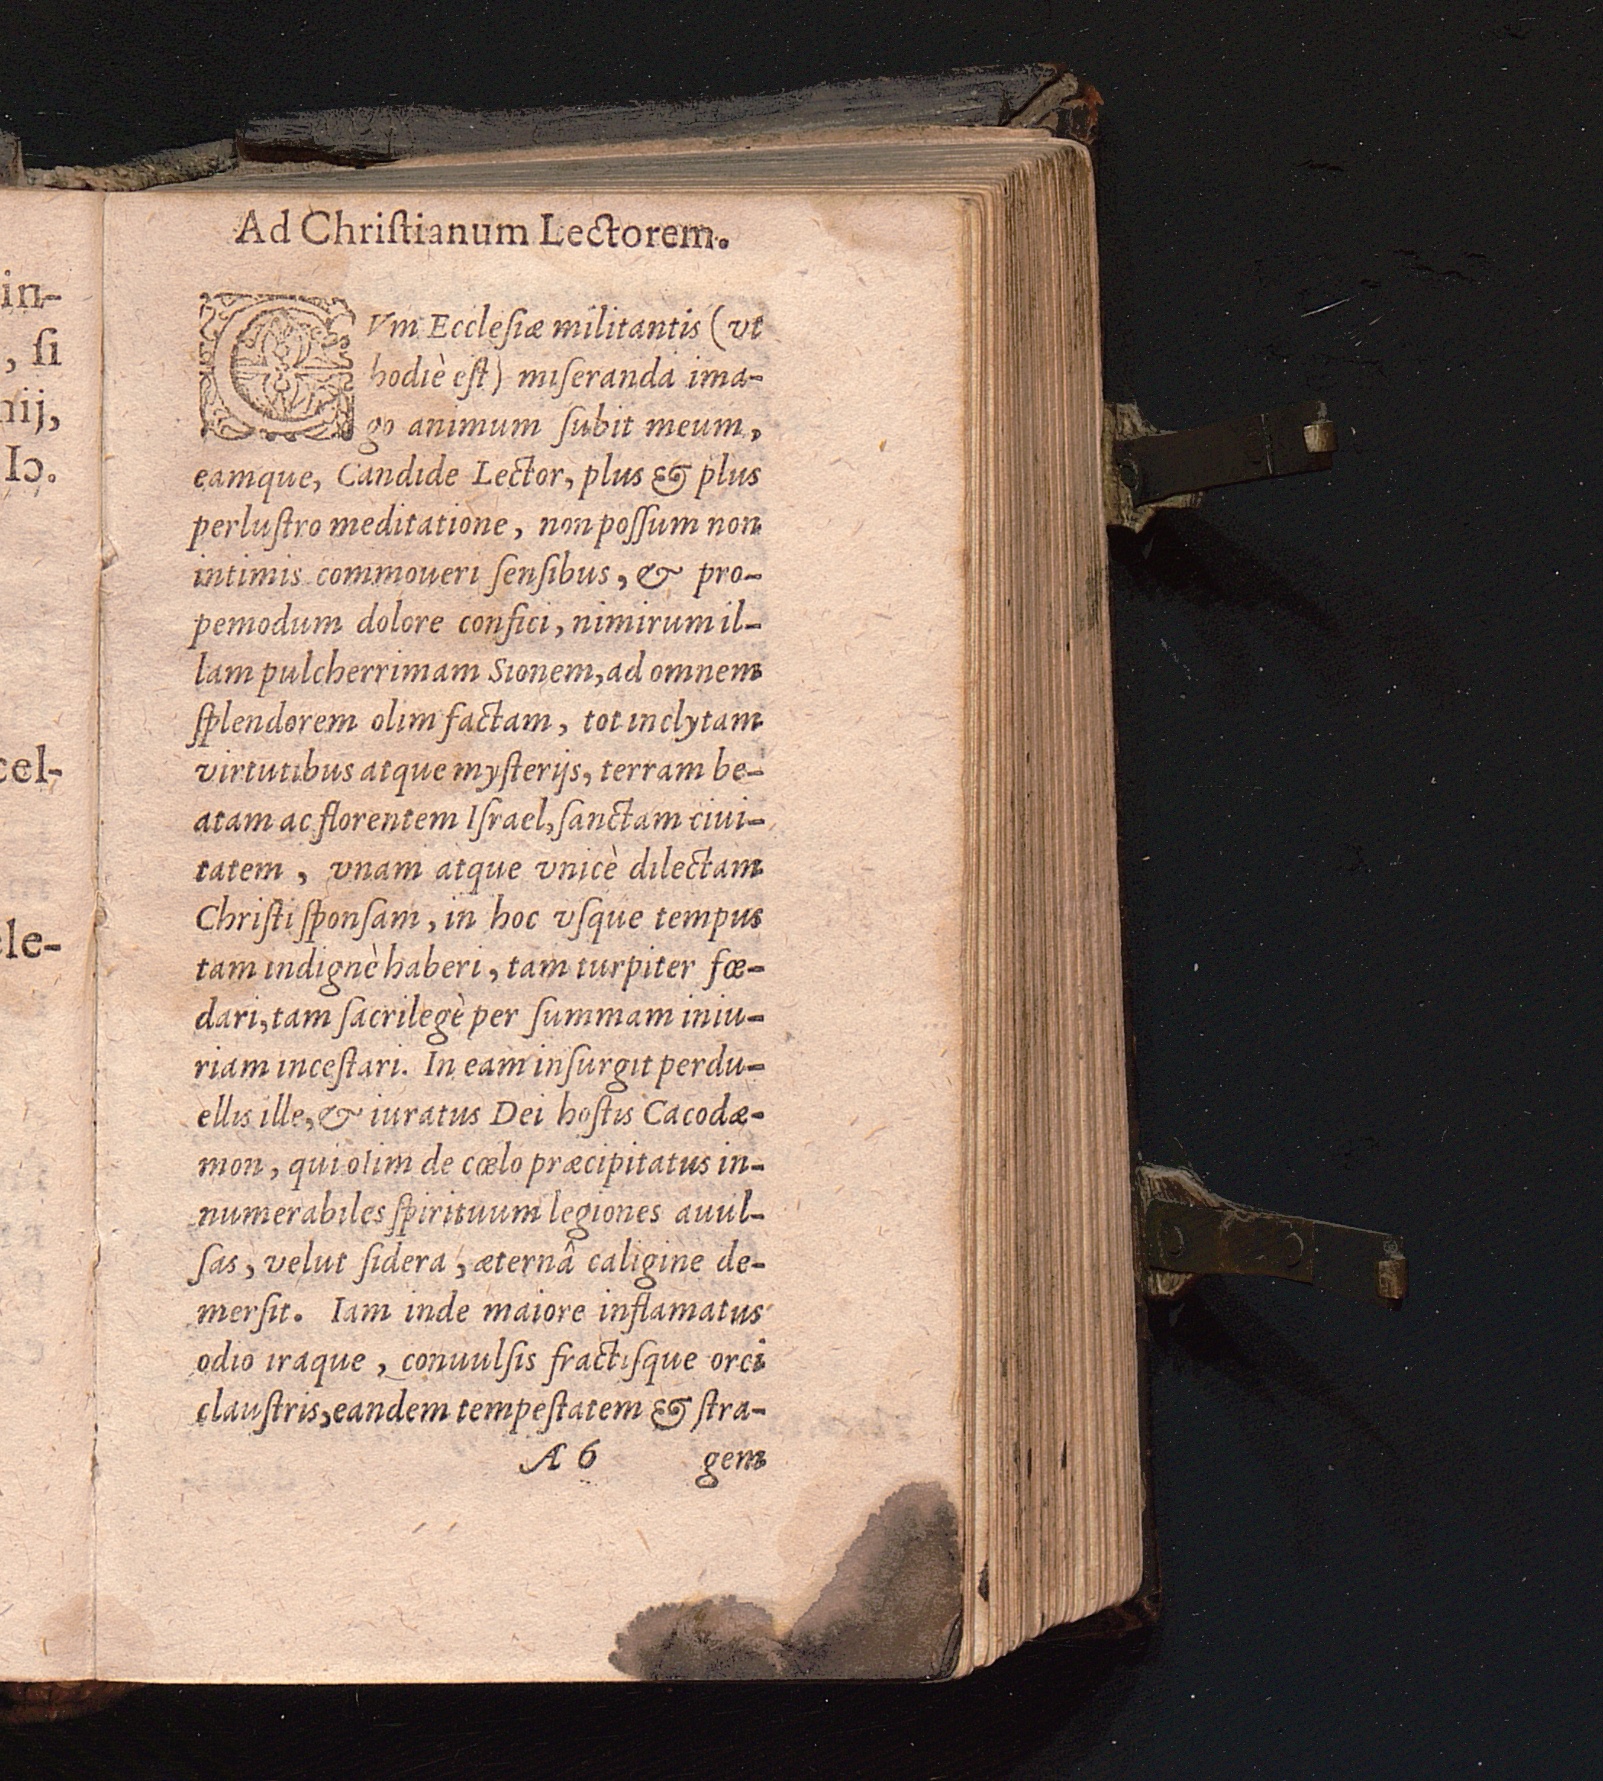 in-
, ſi
nij,
Iↄ.
cel-
ele-
Ad Chriſtianum Lectorem.
CVm Eccleſiæ militantis (vt
hodiè eſt) miſeranda ima-
go animum ſubit meum,
eamque, Candide Lector, plus & plus
perluſtro meditatione, non poſſum non
intimis commoueri ſenſibus, & pro-
pemodum dolore confici, nimirum il-
lam pulcherrimam Sionem, ad omnem
ſplendorem olim factam, tot inclytam
virtutibus atque myſterijs, terram be-
atam ac florentem Iſrael, ſanctam ciui-
tatem, vnam atque vnicè dilectam
Chriſti ſponſam, in hoc vſque tempus
tam indignè haberi, tam turpiter fœ-
dari, tam ſacrilegè per ſummam iniu-
riam inceſtari. In eam inſurgit perdu-
ellis ille, & iuratus Dei hoſtis Cacodæ-
mon, qui olim de cœlo præcipitatus in-
numerabiles ſpirituum legiones auul-
ſas, velut ſidera, æternâ caligine de-
merſit. Iam inde maiore inflamatus
odio iraque, conuulſis fractiſque orci
clauſtris, eandem tempeſtatem & ſtra-
A 6 gem